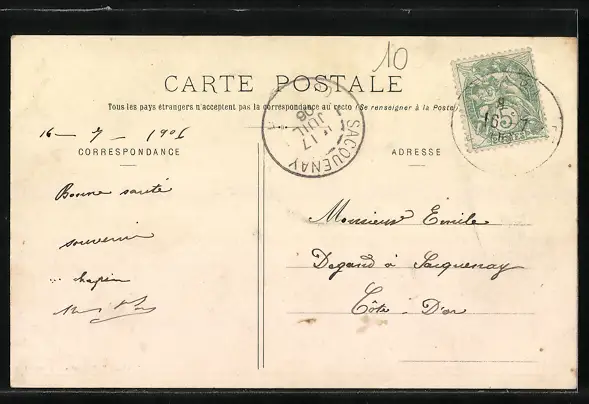 10
CARTE POSTALE
Tous les pays étrangers n'acceptent pas la correspondance au recto (Se renseigner à la Poste)
16 - 7 - 1906
CORRESPONDANCE
ADRESSE
17
JUIL
06
SACQUENAY
16
5
7
Bonne santé
souvenir
Monsieur Emile
Degand à Sacquenay
Côte - D'or